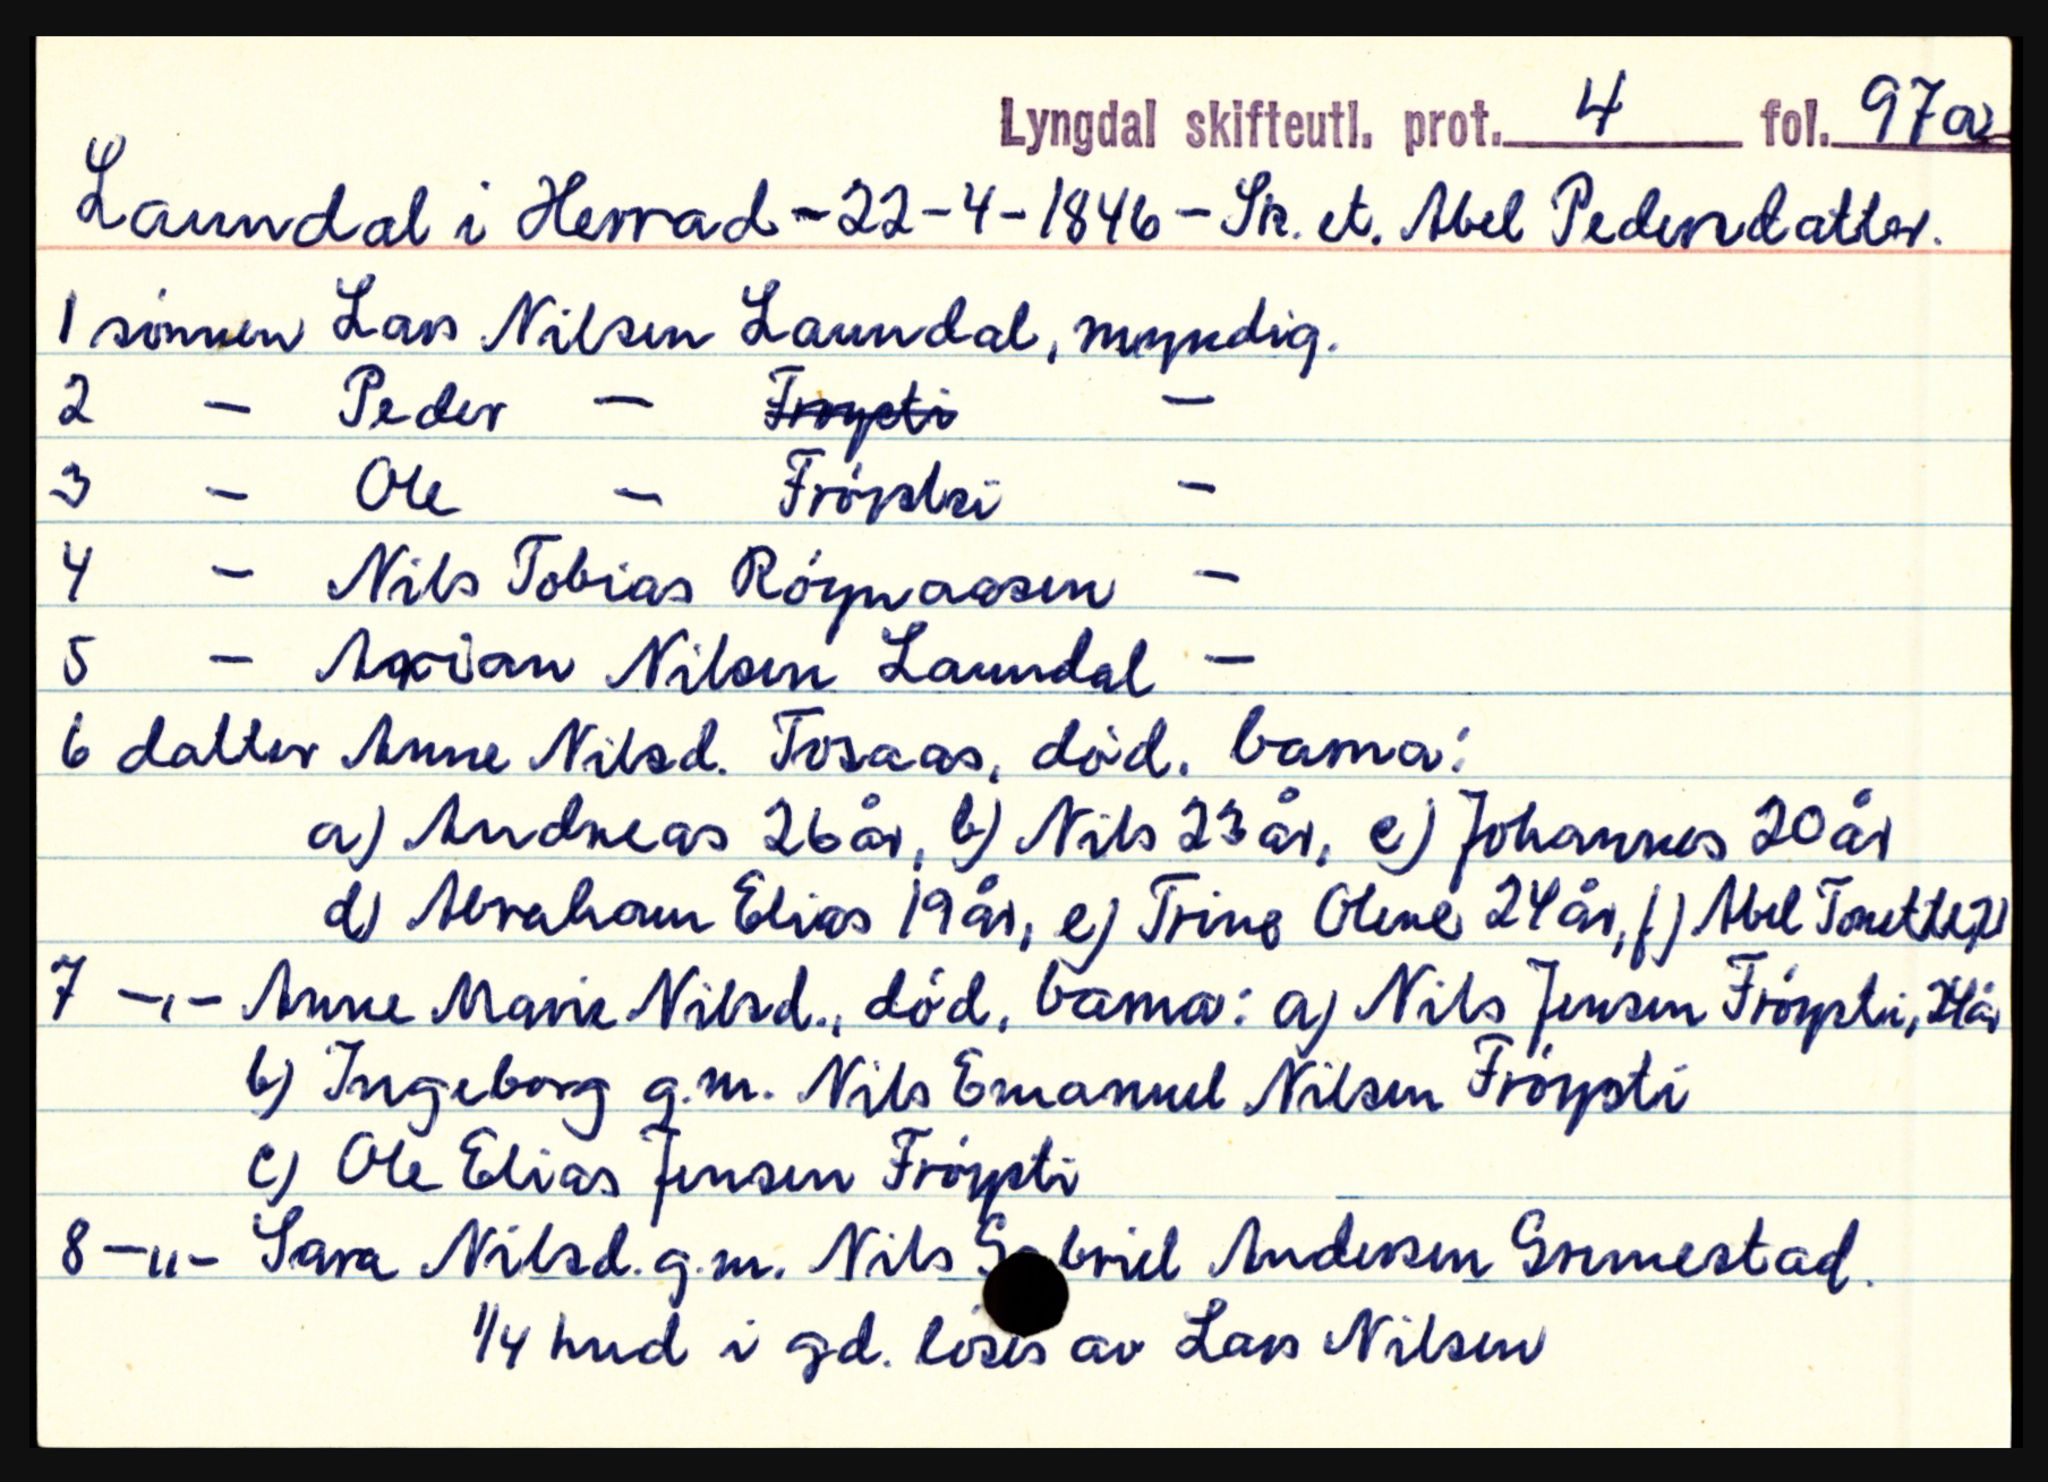 Lyngdal skifteutl. prot. 4 fol. 97a
Laundal i Herrad - 22-4-1846 - Sk. et. Abel Pedersdatter.
1 sønnen Lars Nilsen Laundal, myndig.
2 - Peder - Frøysti -
3 - Ole - Frøysti -
4 - Nils Tobias Röynaasen -
5 - Axian Nilsen Laundal -
6 datter Anne Nilsd. Tosaas, död. barna:
a) Andreas 26 år, b) Nils 23 år, c) Johannes 20 år
d) Abraham Elias 19 år, e) Trine Olene 24 år, f) Abel Tonette
7 -"- Anne Marie Nilsd., död, barna: a) Nils Jensen Fröysti, 24 år
b) Ingeborg g.m. Nils Emanuel Nilsen Fröysti
c) Ole Elias Jensen Fröysti
8 -"- Sara Nilsd. g.m. Nils Gabriel Andersen Grimestad.
1/4 hud i gd. löses av Lars Nilsen